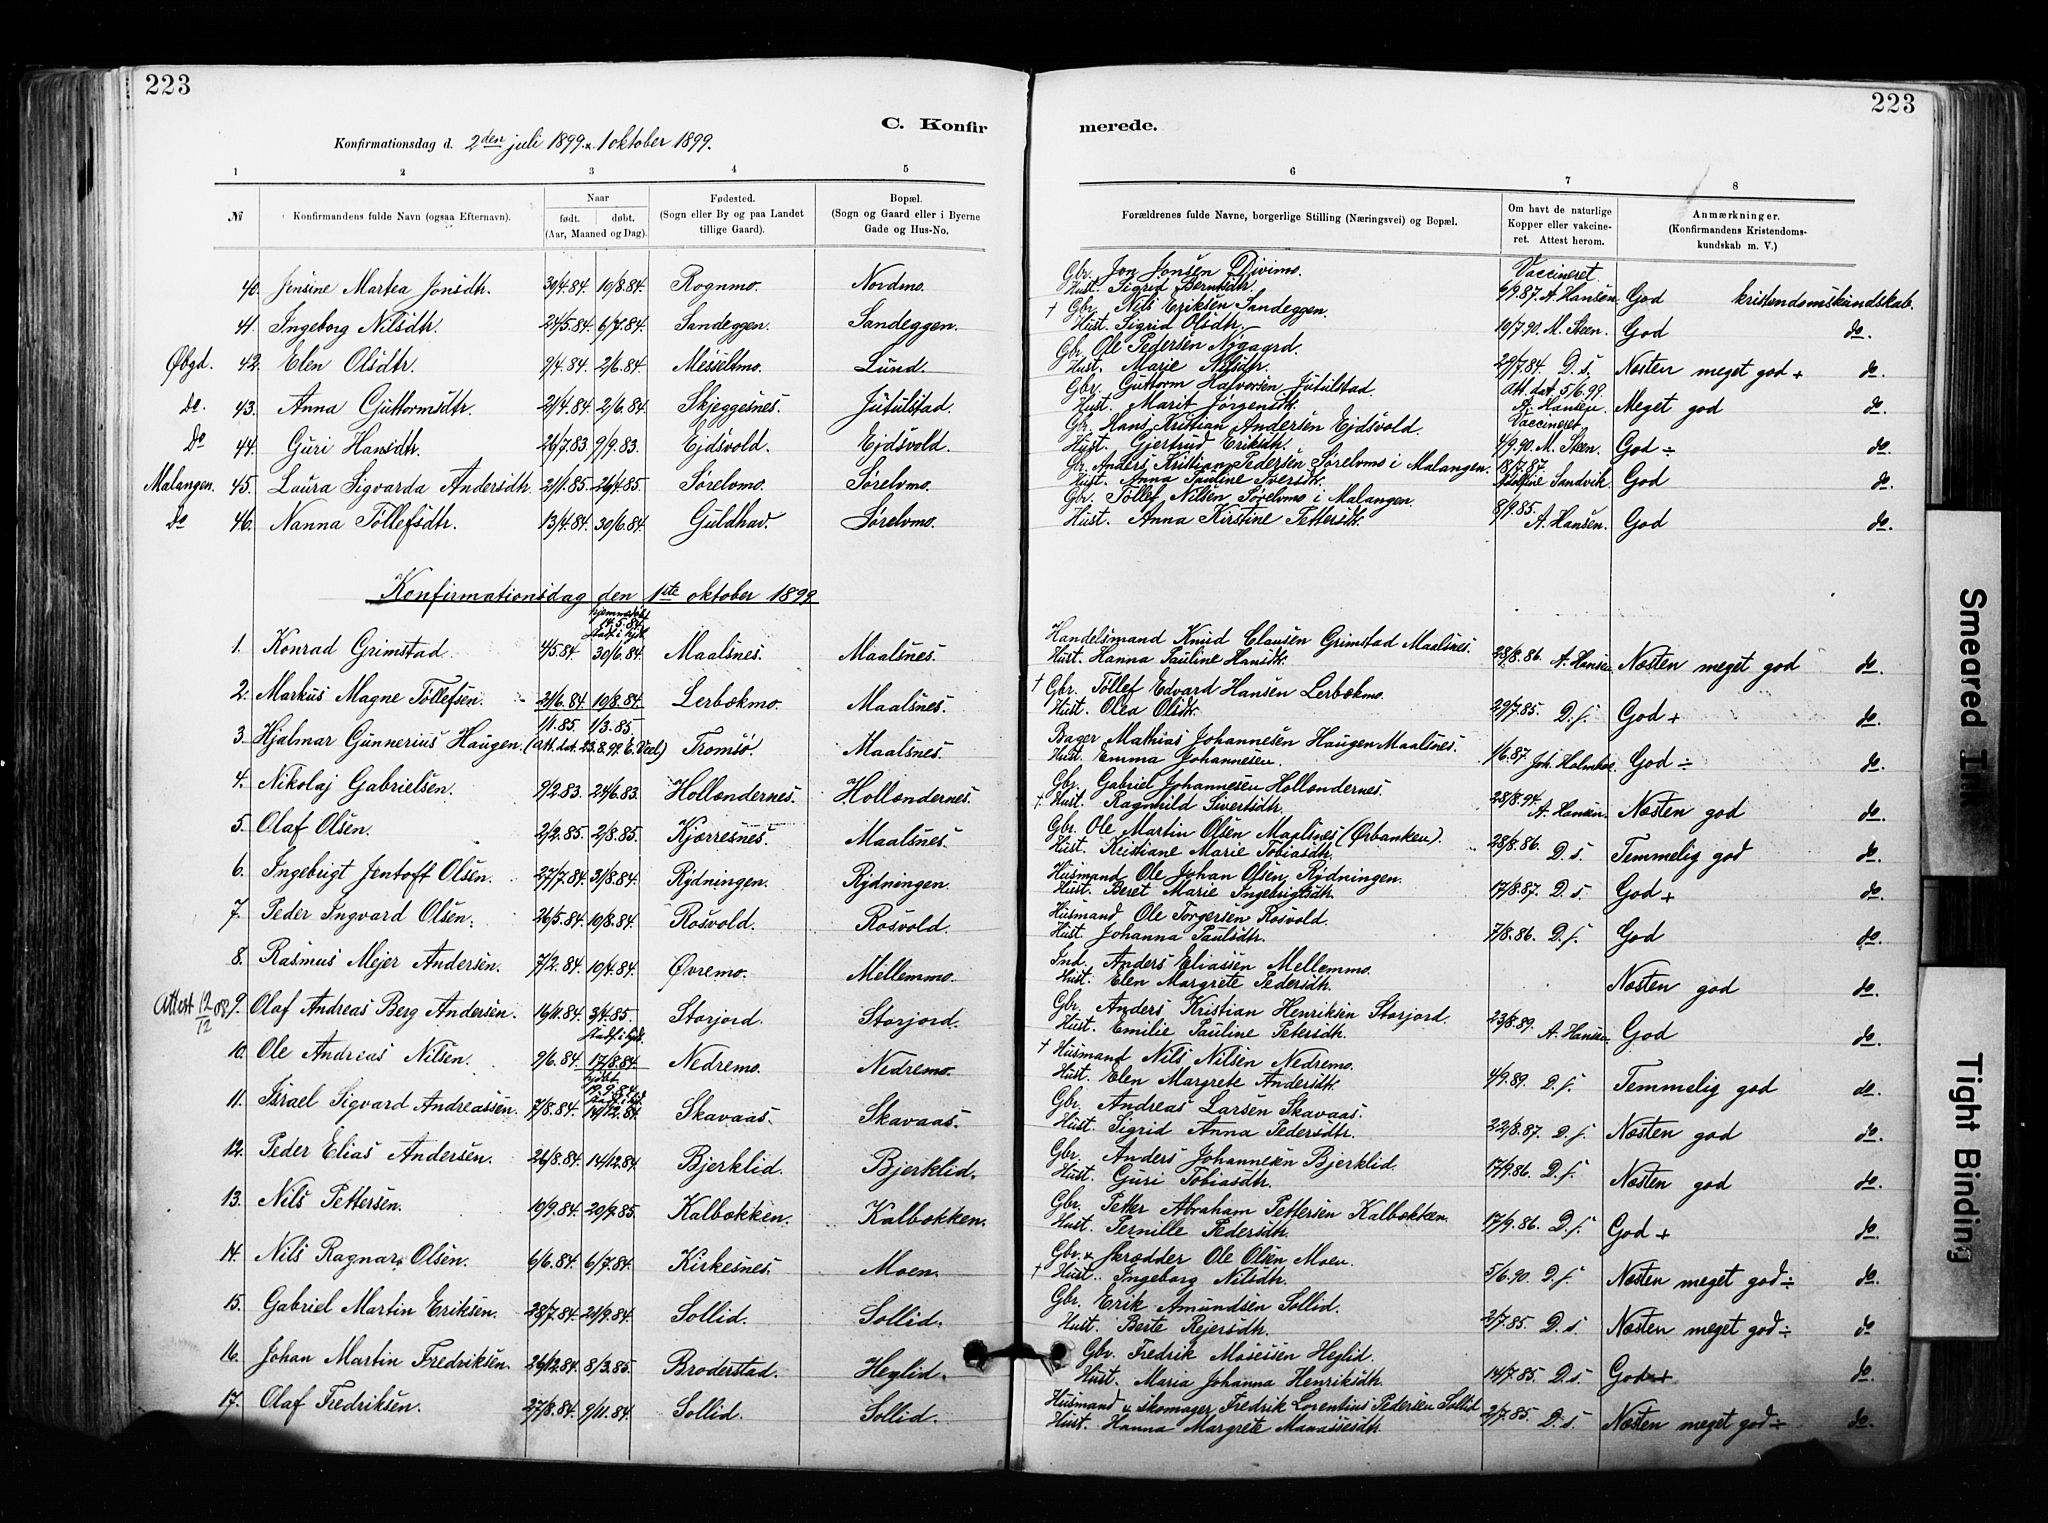 223
223
C. Konfirmerede.
Konfirmationsdag d. 2den juli 1899 . 1 oktober 1899.
1 2 3 4 5 6 7 8
№ Konfirmandens fulde Navn (ogsaa Efternavn). Naar født. døbt. (Aar, Maaned og Dag). Fødested. (Sogn eller By og paa Landet tillige Gaard). Bopæl. (Sogn og Gaard eller i Byerne Gade og Hus-No. Forældrenes fulde Navne, borgerlige Stilling (Næringsvei) og Bopæl. Om havt de naturlige Kopper eller vakcineret. Attest herom. Anmærkninger. (Konfirmandens Kristendomskundskab m. V.)
40. Jensine Martea Jonsdtr. 30/4.84. 10/8.84. Rognmo. Nordmo. Gbr. Jon Jonsen Divimo. Hust. Sigrid Berntsdtr. Vaccineret 6/9.87. A. Hansen. God kristendomskundskab.
41. Ingeborg Nilsdtr. 24/5.84. 6/7.84. Sandeggen. Sandeggen. † Gbr. Nils Eriksen Sandeggen. Hust. Sigrid Olsdtr. 10/7.90. M. Steen. God do.
Øbgd. 42. Elen Olsdtr. 9/4.84. 2/6.84. Messeltmo. Lund. Gbr. Ole Pedersen Nygaard. Hust. Marie Nilsdtr. 29/7.84. D. s. Næsten meget god + do.
do. 43. Anna Guttormsdtr. 21/4.84. 2/6.84. Skjeggesnes. Jutulstad. Gbr. Guttorm Halvorsen Jutulstad. Hust. Marit Jørgensdtr. Att. dat. 5/6.99. A. Hansen. Meget god do.
do 44. Guri Hansdtr. 26/7.83. 9/9.83. Ejdsvold. Ejdsvold. Gbr. Hans Kristian Andersen Ejdsvold. Hust. Gjertrud Eriksdtr. Vaccineret 4/9.90. M. Steen. God ÷ do.
Malangen. 45. Laura Sigvarda Andersdtr. 21/1.85. 26/4.85. Sørelvmo. Sørelvmo. Gbr. Anders Kristian Pedersen Sørelvmo i Malangen. Hust. Anna Pauline Iversdtr. 18/7.87. Sandvik. God do.
do 46. Nanna Tollefsdtr. 13/4.84. 30/6.84. Guldhav. Sørelvmo. Gbr. Tollef Nilsen Sørelvmo i Malangen. Hust. Anna Kirstine Pettersdtr. 8/9.85. A. Hansen. God do.
Konfirmationsdag den 1ste oktober 1899
1. Konrad Grimstad. 4/5.84. hjemmedøbt 14.5.84. stadf. i kirk. 30/6.84. Maalsnes. Maalsnes. Handelsmand Knud Clausen Grimstad Maalsnes. Hust. Hanna Pauline Hansdtr. 28/8.86. A. Hansen. Næsten meget god do.
2. Markus Magne Tollefsen. 21/6.84. 10/8.84. Lerbækmo. Maalsnes. † Gbr. Tollef Edvard Hansen Lerbækmo. Hust. Olea Olsdtr. 29/7.85. D. s. God + do.
3. Hjalmar Gunnerius Haugen. 1/1.85. 1/3.85. (Att. dat. 23.8.99 ) Tromsø. Maalsnes. Bager Mathias Johannesen Haugen Maalsnes. Hust. Emma Johannesen. 1/6.87. Joh. Holmboe. God ÷ do.
4. Nikolaj Gabrielsen. 9/2.83. 24/6.83. Hollændernes. Hollændernes. Gbr. Gabriel Johannesen Hollændernes. † Hust. Ragnhild Sivertsdtr. 28/8.94. A. Hansen. Næsten god do.
5. Olaf Olsen. 2/2.85. 2/8.85. Kjærresnes. Maalsnes. Gbr. Ole Martin Olsen Maalsnes (Ørbanken). Hust. Kristiane Marie Tobiasdtr. 28/8.86. D. s. Temmelig god do.
6. Ingebrigt Jentoft Olsen. 27/7.84. 31/8.84. Rydningen. Rydningen. Husmand Ole Johan Olsen Rydningen. Hust. Beret Marie Ingebrigtsdtr. 17/8.87. D. s. God + do.
7. Peder Ingvard Olsen. 26/5.84. 10/8.84. Rosvold. Rosvold. Husmand Ole Torgersen Rosvold. Hust. Johanna Paulsdtr. 7/8.86. D. s. God do.
8. Rasmus Mejer Andersen. 7/2.84. 10/4.84. Øvremo. Mellemmo. Ind. Anders Eliassen Mellemmo. Hust. Elen Margrete Pedersdtr. Næsten god do.
Attest 12/12 08 9. Olaf Andreas Berg Andersen. 16/11.84. 3/4.85. Storjord. Storjord. Gbr. Anders Kristian Henriksen Storjord. Hust. Emilie Pauline Petersdtr. 23/8.89. A. Hansen. God do.
10. Ole Andreas Nilsen. 9/6.84. stadf. i kirk. 17/8.84. Nedremo. Nedremo. † Husmand Nils Nilsen Nedremo. Hust. Elen Margrete Andersdtr. 4/9.89. D. s. Temmelig god do.
11. Israel Sigvard Andreassen. 7/8.84. hjdøbt 19.9.84. stadf. i kirk. 14/12.84. Skavaas. Skavaas. Gbr. Andreas Larsen Skavaas. Hust. Sigrid Anna Pedersdtr. 22/8.87. D. s. Næsten god do.
12. Peder Elias Andersen. 26/8.84. 14/12.84. Bjerklid. Bjerklid. Gbr. Anders Johannesen Bjerklid. Hust. Guri Tobiasdtr. 17/9.86. D. s. Næsten god do.
13. Nils Pettersen. 19/9.84. 20/9.85. Kalbækken. Kalbækken. Gbr. Petter Abraham Pettersen Kalbækken. Hust. Pernille Pedersdtr. 17/9.86. D. s. God + do.
14. Nils Ragnar Olsen. 6/6.84. 6/7.84. Kirkesnes. Moen. Gbr. & skrædder Ole Olsen Moen. † Hust. Ingeborg Nilsdtr. 5/6.90. D. s. Næsten meget god ÷ do.
15. Gabriel Martin Eriksen. 28/7.84. 21/9.84. Sollid. Sollid. Gbr. Erik Amundsen Sollid. Hust. Berte Rejersdtr. 2/7.85. D. s. Næsten meget god ÷ do
16. Johan Martin Fredriksen. 26/12.84. 8/3.85. Broderstad. Heglid. Gbr. Fredrik Mosesen Heglid. Hust. Maria Johanna Henriksdtr. 14/7.85. D. s. God + do.
17. Olaf Fredriksen. 27/8.84. 9/11.84. Sollid. Sollid. Husmand & skomager Fredrik Lorentius Pedersen Sollid Hust. Hanna Margrete Manassesdtr. 2/7.85. D. s. Næsten meget god ÷ do.
Smeared Ink
Tight Binding